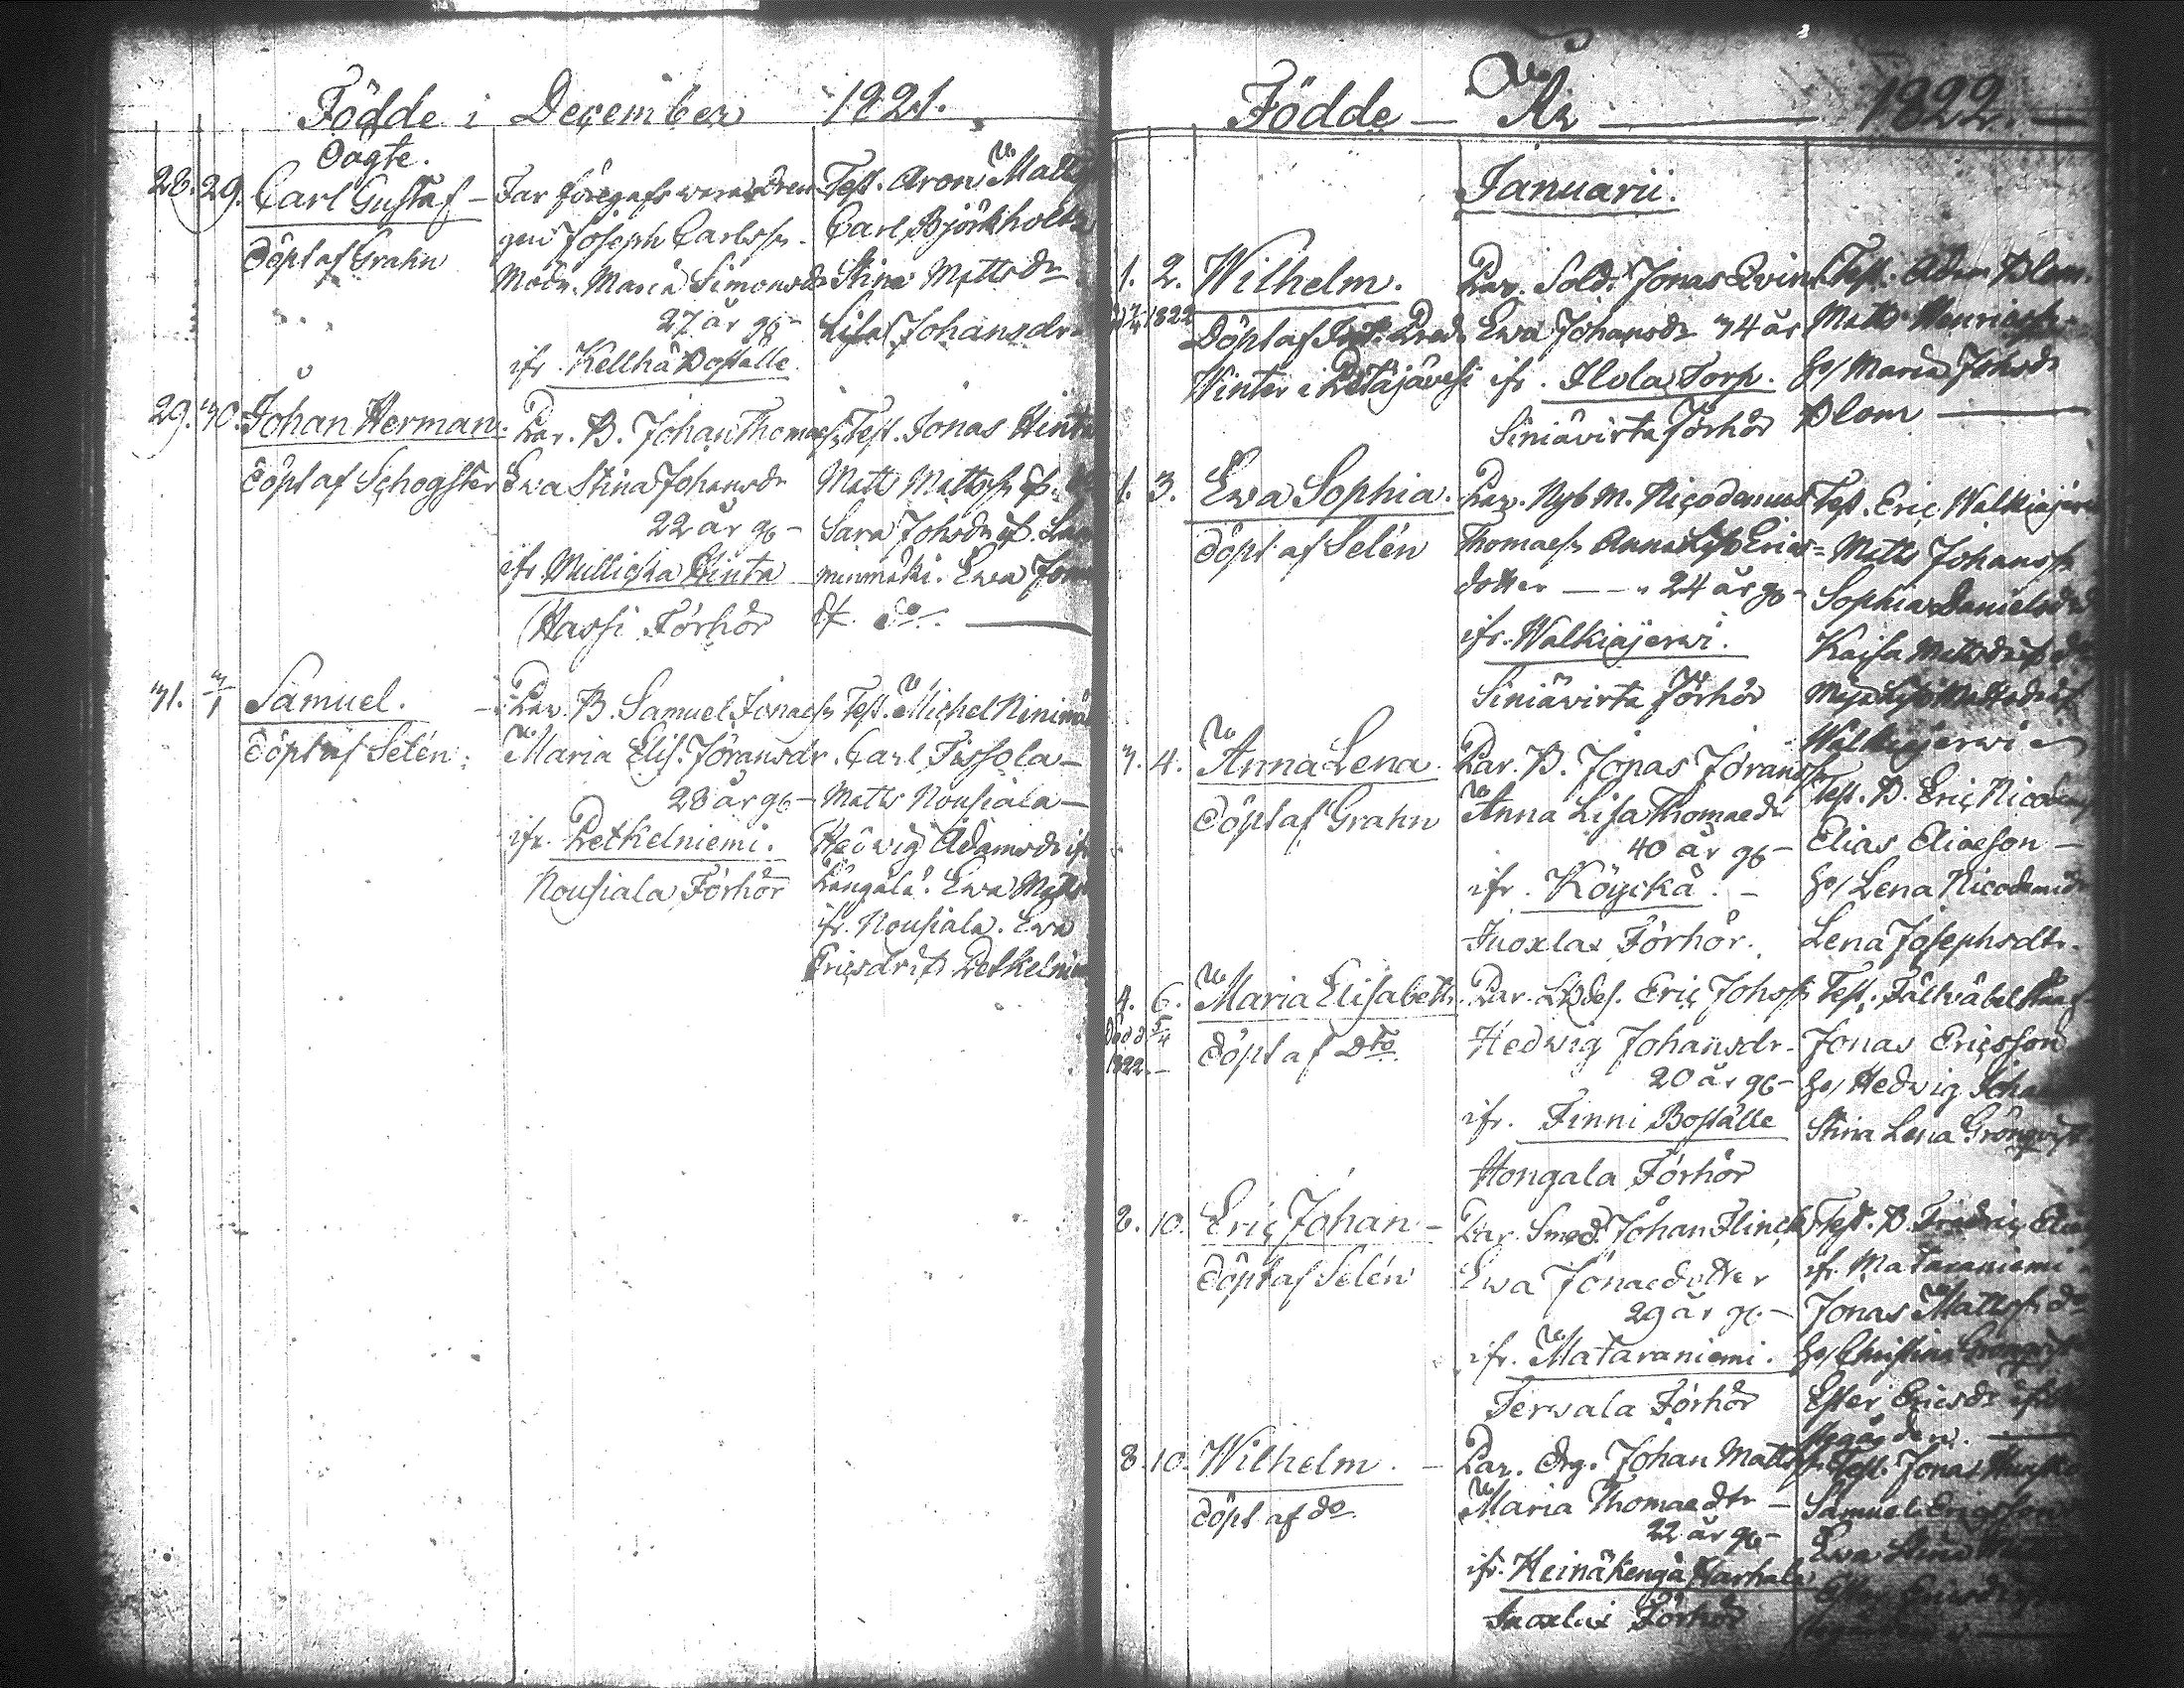 Födde i December 1821.
Oägte.
28. 29. Carl Gustaf –
döpt af Grahn
Far föregafs wara dren
gen Joseph Carlsson.
Modr. Maria Simonsdr
27 år gl –
ifr. Kellhå Boställe.
Test. Aron Matts
Carl Björkholtz
Stina Mattsdr
Lisa Johansdr
29. 30. Johan Herman.
döpt af Schogster
Par. B. Johan Thomæss.
Ewa Stina Johansdr
22 år gl –
ifr. Mullicka Hinta
Hassi Förhör
Test. Jonas Hinta
Matts Mattss. if.
Sara Johsdr if.
minmäki. Ewa
df. do. —
31. 3/1 Samuel.
döpt af Selén.
Par. B. Samuel Jonaess.
Maria Elis. Göransdr.
28 år gl –
ifr. Petkelniemi.
Nousiala Förhör
Test. Michel Ninimä
Carl Tissola –
Matts Nousiala –
Hedvig Adamsdr ifr
Kängälä. Ewa Matts
ifr. Nousiala. Ewa
Ericsdr if. Petkelniem
Födde — År — 1822. —
Januarii.
1. 2. Wilhelm.
1822
Döpt af Pred.
Winter i Petäjävesi
Par. Sold. Jonas Qvin
Ewa Johansdr 34 år
ifr. Ilola Torp.
Siniävirta Förhör
Test. Adam Blom.
Matts Henricss.
Ho/ Maria Johsdr
Blom —
1. 3. Ewa Sophia.
döpt af Selén
Par. Nyb. M. Nicodemus
Thomaess. Anna Lis. Erics=
dotter — 24 år gl –
ifr. Walkiajerwi.
Siniävirta Förhör
Test. Eric Walkiajärvi
Matts Johanss.
Sophia Danielsdr
Kaisa Mattsdr if. do
Maja Lis. Mattsdr if
Walkiajerwi
3. 4. Anna Lena.
döpt af Grahn
Par. B. Jonas Göranss.
Anna Lisa Thomaedr
40 år gl –
ifr. Köyckä. –
Juoxlax Förhör.
Test. B. Eric Nicodem
Elias Eliaeson –
Ho/ Lena Nicodemidr
Lena Josephsdtr.
4. 6. Maria Elisabeth.
död d 5/4
1822. –
döpt af Dto.
Par. Eric Johss.
Hedwig Johansdr.
20 år gl –
ifr. Finni Boställe
Hongala Förhör
Test. Fältväbel
Jonas Ericsson
Ho/ Hedwig Johan
Stina Lena Grönqvist
8. 10. Eric Johan –
döpt af Selén
Par. Smed. Johan Flinck
Ewa Jonaedotter
29 år gl. –
ifr. Mataraniemi.
Terwala Förhör
Test. B. Fredric Elia
if. Mataraniemi
Jonas Mattss. do
Ho/ Christina Grönqvist
Ester Ericsdr
8. 10. Wilhelm. –
döpt af do
Par. Drg. Johan Mattss.
Maria Thomaedtr –
22 år gl –
ifr. Heinäkengä Harhala
Juoxlax Förhör
Test. Jonas
Samuel Ericsson
Ewa Stina
Ester Ericsdr